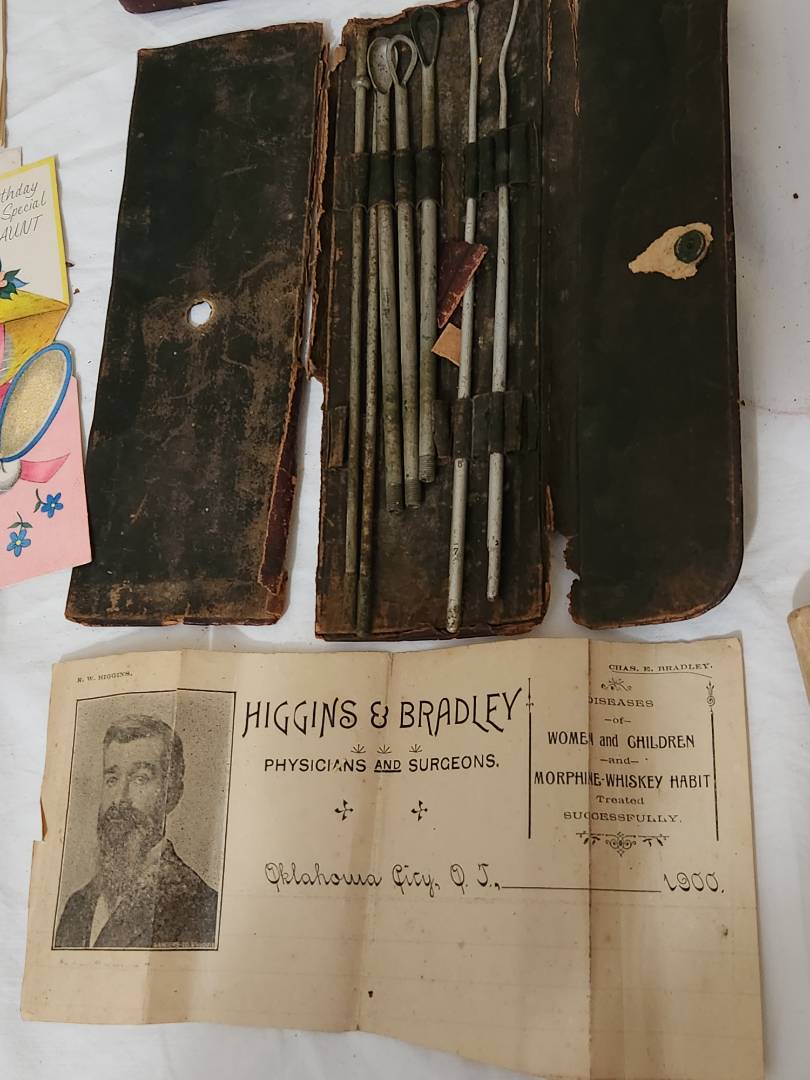 thday
Special
AUNT
8
7
2
R. W. HIGGINS.
CHAS. E. BRADLEY.
HIGGINS & BRADLEY
PHYSICIANS AND SURGEONS.
DISEASES
-of-
WOMEN and CHILDREN
-and-
MORPHINE-WHISKEY HABIT
Treated
SUCCESSFULLY.
Oklahoma City, O. T., 1900.